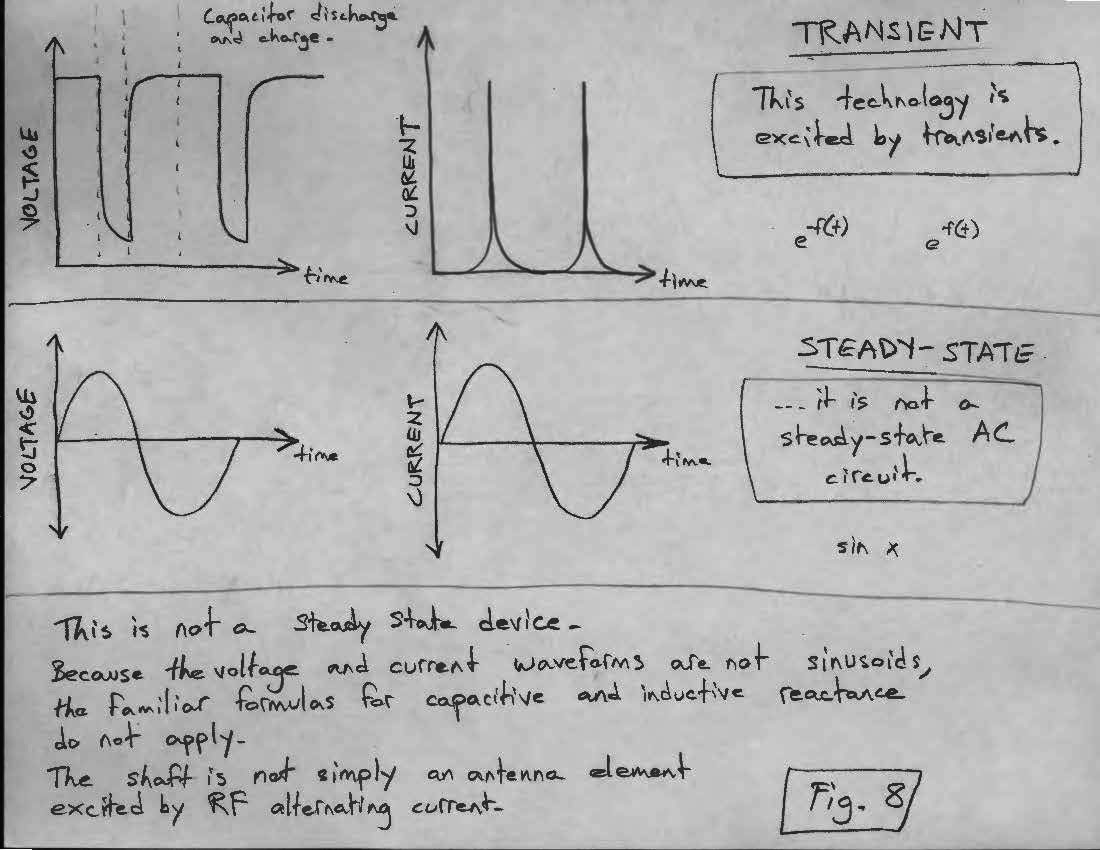 Capacitor discharge
and charge.
VOLTAGE
time
CURRENT
time
TRANSIENT
This technology is
excited by transients.
e^-f(t) e^f(t)
VOLTAGE
time
CURRENT
time
STEADY-STATE
... it is not a
steady-state AC
circuit.
sin x
This is not a steady state device.
Because the voltage and current waveforms are not sinusoids,
the familiar formulas for capacitive and inductive reactance
do not apply.
The shaft is not simply an antenna element
excited by RF alternating current.
Fig. 8